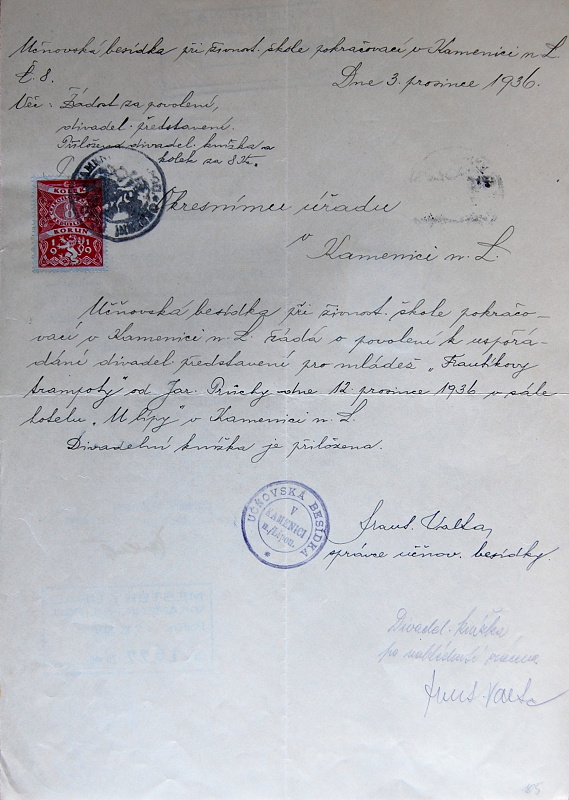 Učňovská besídka při živnost. škole pokračovací v Kamenici n. L.
Č. 8.
Dne 3. prosince 1936.
Věc: Žádost za povolení
divadel. představení.
Přiložena divadel. knížka a
kolek za 8 Kč.
8
KORUN
Okresnímu úřadu
v
Kamenici n. L.
Učňovská besídka při živnost. škole pokračo-
vací v Kamenici n. L. žádá o povolení k uspořá-
dání divadel. představení pro mládež „Frantíkovy
trampoty" od Jar. Průchy dne 12. prosince 1936 v sále
hotelu „U lípy" v Kamenici n. L.
Divadelní knížka je přiložena.
UČŇOVSKÁ BESÍDKA
V
KAMENICI
n./Lipou.
Frant. Valta,
správce učňov. besídky.
Divadel. knížka
po nahlédnutí
Frant. Valta